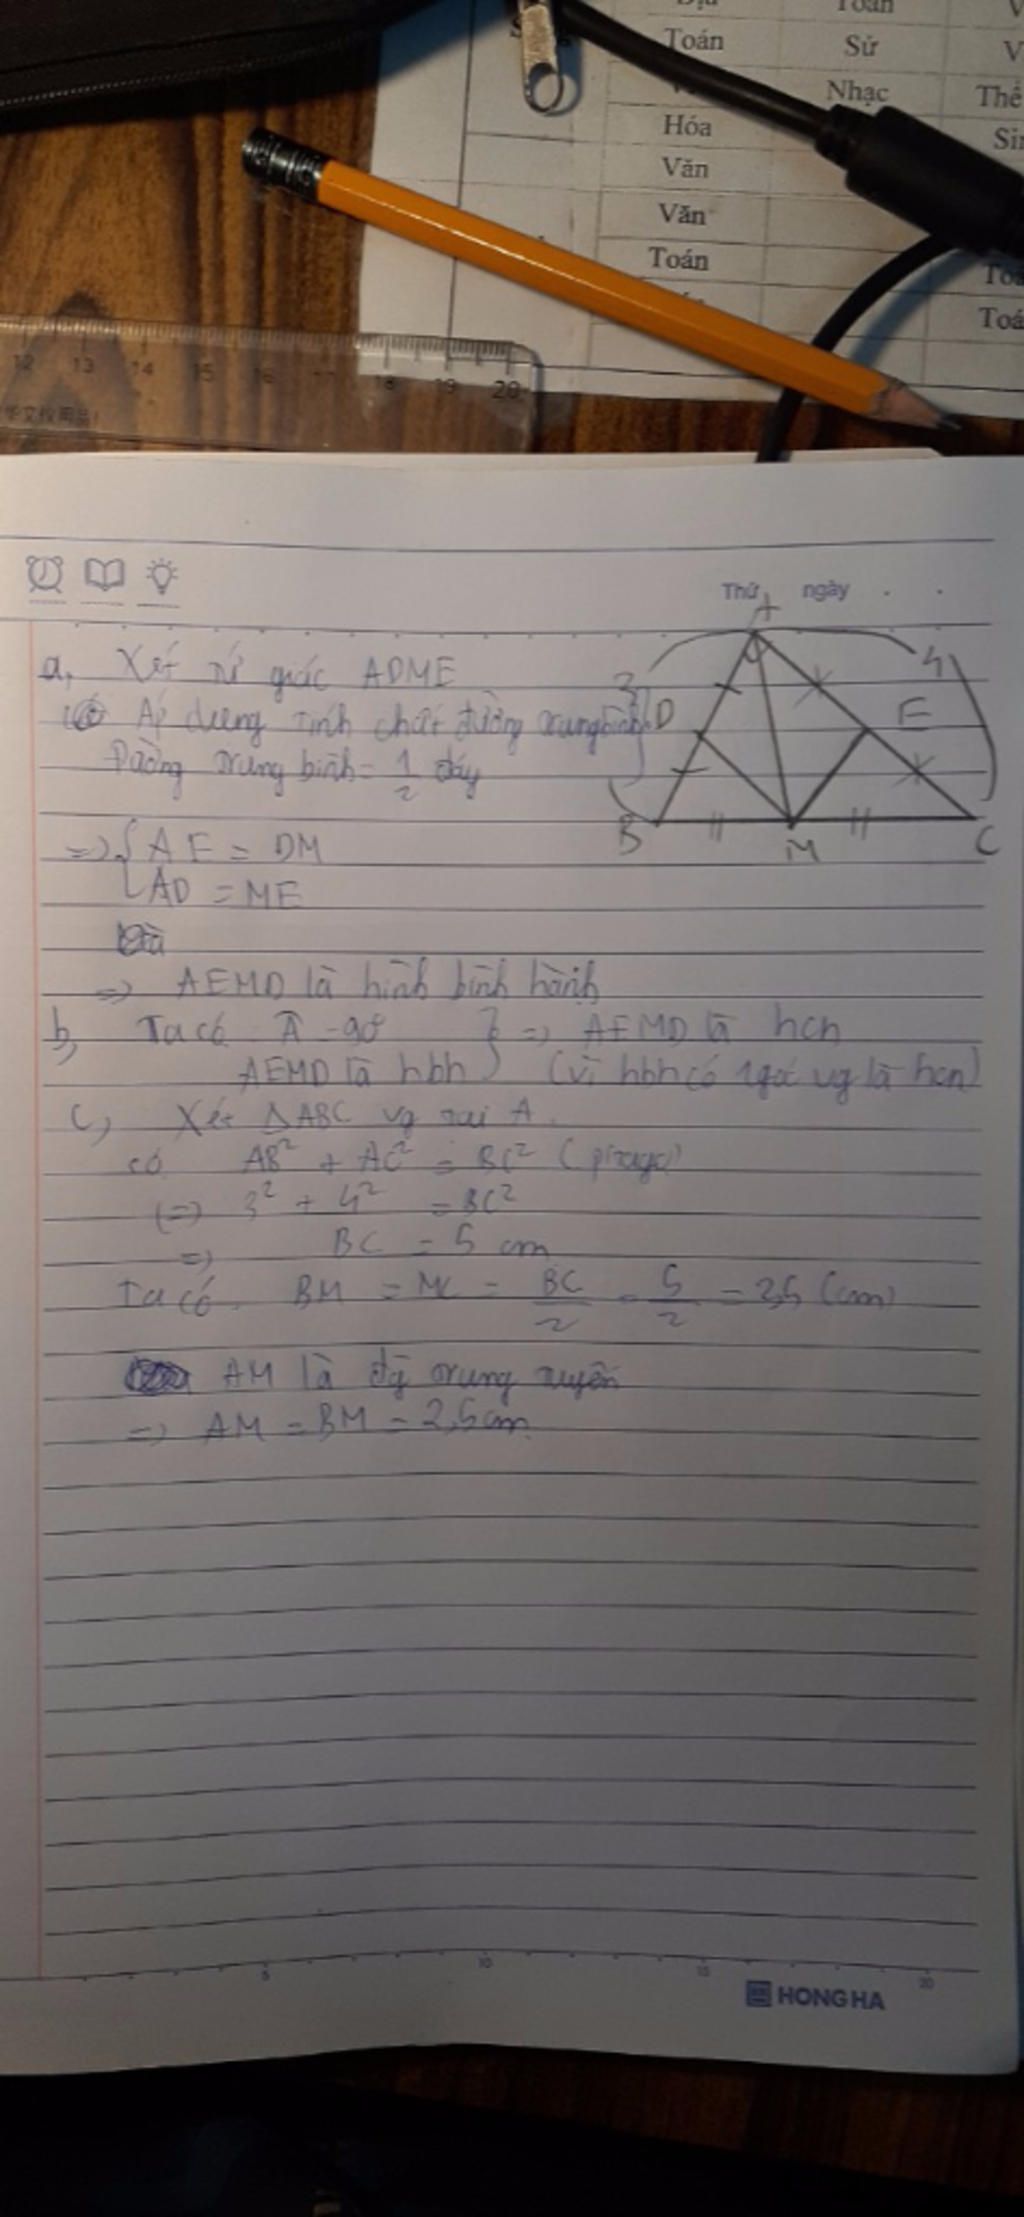 Toán
Toán Sử V
Nhạc Thể
Hóa
Văn
Văn
Toán
Toá
12 13 14 15 16 17 18 19 20
Thứ ngày
A
a, Xét tứ giác ADME
Áp dụng tính chất đường trung bình
Đường trung bình = 1/2 đáy
3 4
D E
B M C
=> { AE = DM
AD = ME
=> AEMD là hình bình hành
b, Ta có Â = 90° } => AEMD là hcn
AEMD là hbh (vì hbh có 1 góc vg là hcn)
c, Xét ΔABC vg tại A.
có AB² + AC² = BC² (pitago)
(=> 3² + 4² = BC²
=> BC = 5 cm
Ta có BM = MC = BC/2 = 5/2 = 2,5 (cm)
AM là đg trung tuyến
=> AM = BM = 2,5 cm
5 10 15 20
HONG HA